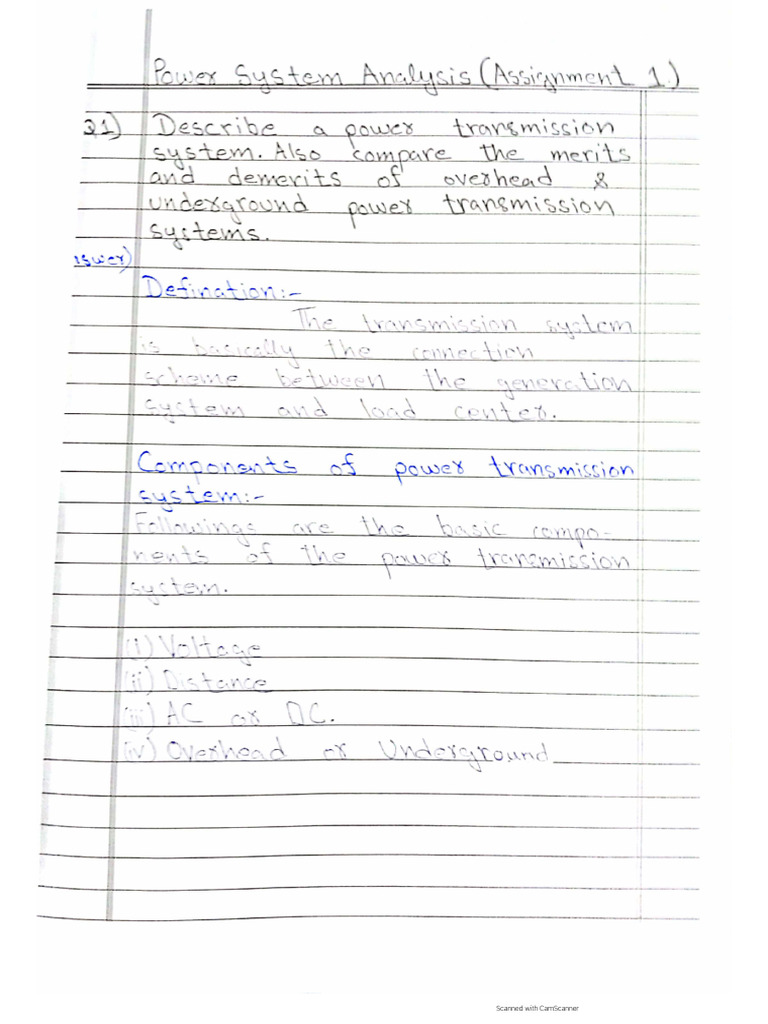 Power System Analysis (Assignment 1.)
Q1) Describe a power transmission
system. Also compare the merits
and demerits of overhead &
underground power transmission
systems.
nswer)
Defination:-
The transmission system
is basically the connection
scheme between the generation
system and load center.
Components of power transmission
system:-
Followings are the basic compo-
nents of the power transmission
system.
(i) Voltage
(ii) Distance
(iii) AC or DC.
(iv) Overhead or Underground
Scanned with CamScanner